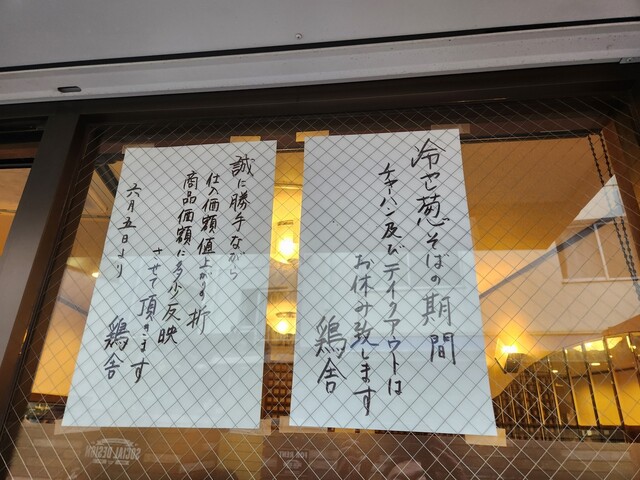 冷やし葱そばの期間
チャーハン及びテイクアウトは
お休み致します
鶏舎
誠に勝手ながら
仕入価額値上がりの折
商品価額に多少反映
させて頂きます
六月五日より
鶏舎
SOCIAL DESIGN
FOR RENT